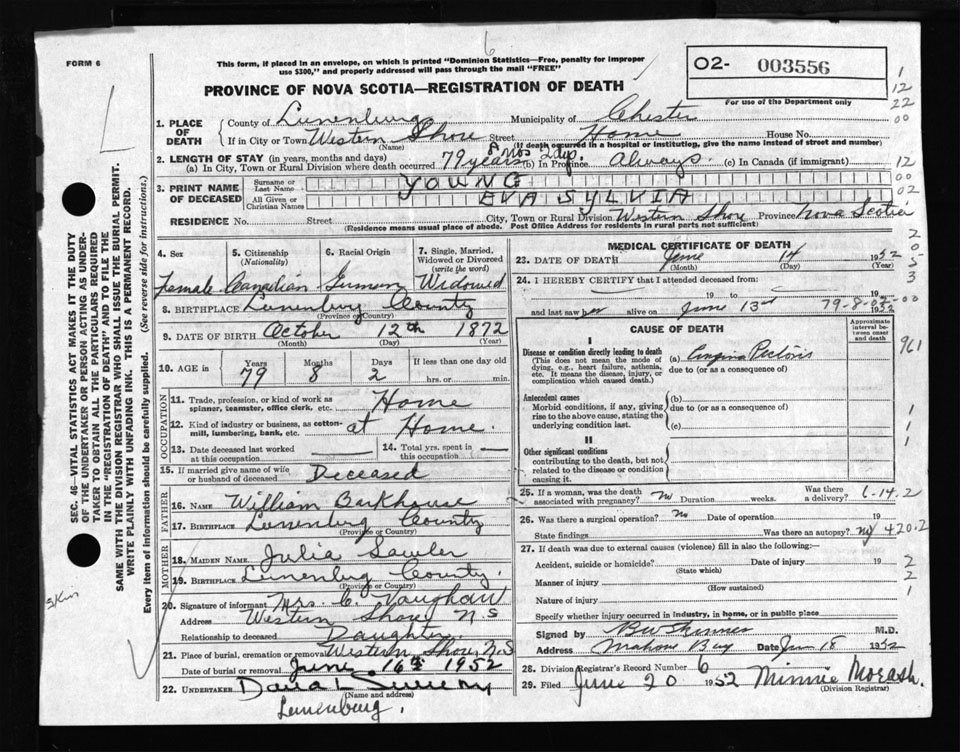 6
FORM 6
This form, if placed in an envelope, on which is printed "Dominion Statistics—Free, penalty for improper
use $300," and properly addressed will pass through the mail "FREE"
O2- 003556
For use of the Department only
PROVINCE OF NOVA SCOTIA—REGISTRATION OF DEATH
1. PLACE OF DEATH County of Lunenburg Municipality of Chester
If in City or Town Western Shore Street Home House No.
(Name) (If death occurred in a hospital or institution, give the name instead of street and number)
2. LENGTH OF STAY (in years, months and days)
(a) In City, Town or Rural Division where death occurred 79 years 8 Mos 2 dys. (b) In Province Always. (c) In Canada (if immigrant)
3. PRINT NAME OF DECEASED Surname or Last Name YOUNG
All Given or Christian Names EVA SYLVIA
RESIDENCE No. Street City, Town or Rural Division Western Shore Province Nova Scotia
(Residence means usual place of abode. Post Office Address for residents in rural parts not sufficient)
4. Sex 5. Citizenship (Nationality) 6. Racial Origin 7. Single, Married, Widowed or Divorced (write the word)
Female Canadian German Widowed
8. BIRTHPLACE Lunenburg County
(Province or Country)
9. DATE OF BIRTH October 12th 1872
(Month) (Day) (Year)
10. AGE in Years Months Days If less than one day old
79 8 2 hrs. or min.
OCCUPATION
11. Trade, profession, or kind of work as spinner, teamster, office clerk, etc. Home
12. Kind of industry or business, as cotton-mill, lumbering, bank, etc. at Home.
13. Date deceased last worked at this occupation 14. Total yrs. spent in this occupation
15. If married give name of wife or husband of deceased Deceased
FATHER
16. NAME William Barkhouse
17. BIRTHPLACE Lunenburg County
(Province or Country)
MOTHER
18. MAIDEN NAME Julia Sawler
19. BIRTHPLACE Lunenburg County.
(Province or Country)
20. Signature of informant Mrs. C. Vaughan
Address Western Shore N.S
Relationship to deceased Daughter
21. Place of burial, cremation or removal Western Shore N.S
Date of burial or removal June 16th 1952
22. UNDERTAKER
(Name and address)
Lunenburg.
MEDICAL CERTIFICATE OF DEATH
23. DATE OF DEATH June 14 1952
(Month) (Day) (Year)
24. I HEREBY CERTIFY that I attended deceased from:
19 to 19
and last saw her alive on June 13th 1952
79-8-02-00
CAUSE OF DEATH
Approximate interval between onset and death
I
Disease or condition directly leading to death (a) Angina Pectoris
(This does not mean the mode of dying, e.g., heart failure, asthenia, etc. It means the disease, injury, or complication which caused death.) due to (or as a consequence of)
Antecedent causes (b)
Morbid conditions, if any, giving rise to the above cause, stating the underlying condition last. due to (or as a consequence of)
(c)
II
Other significant conditions
contributing to the death, but not related to the disease or condition causing it.
25. If a woman, was the death associated with pregnancy? No Duration weeks. Was there a delivery?
26. Was there a surgical operation? No Date of operation 19
State findings Was there an autopsy? No 420.2
27. If death was due to external causes (violence) fill in also the following:—
Accident, suicide or homicide? Date of injury 19
(State which)
Manner of injury
(How sustained)
Nature of injury
Specify whether injury occurred in industry, in home, or in public place
Signed by M.D.
Address Mahone Bay Date Jun 18 1952
28. Division Registrar's Record Number 6
29. Filed June 20 1952 Minnie Morash.
(Division Registrar)
SEC. 46—VITAL STATISTICS ACT MAKES IT THE DUTY
OF THE UNDERTAKER OR PERSON ACTING AS UNDER-
TAKER TO OBTAIN ALL THE PARTICULARS REQUIRED
IN THE "REGISTRATION OF DEATH" AND TO FILE THE
SAME WITH THE DIVISION REGISTRAR WHO SHALL ISSUE THE BURIAL PERMIT.
WRITE PLAINLY WITH UNFADING INK. THIS IS A PERMANENT RECORD.
Every item of information should be carefully supplied. (See reverse side for instructions.)
1
12
22
00
12
00
02
2
0
5
3
961
1
1
2
2
1